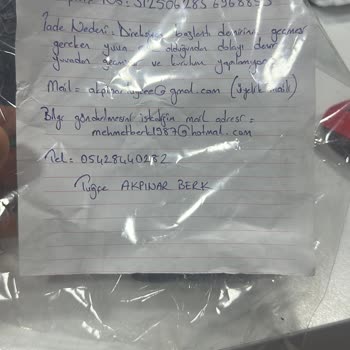 No: 3125062856968853
İade Nedeni: Direksiyon başlantı demirinin geçmesi
gereken yuva olduğundan dolayı demir
yuvadan ve kurulum yapılamıyor
Mail = @gmail.com (üyelik maili)
Bilgi gönderilmesini istediğim mail adresi =
mehmetberk1987@hotmail.com
Tel: 05428440282
Tuğçe AKPINAR BERK